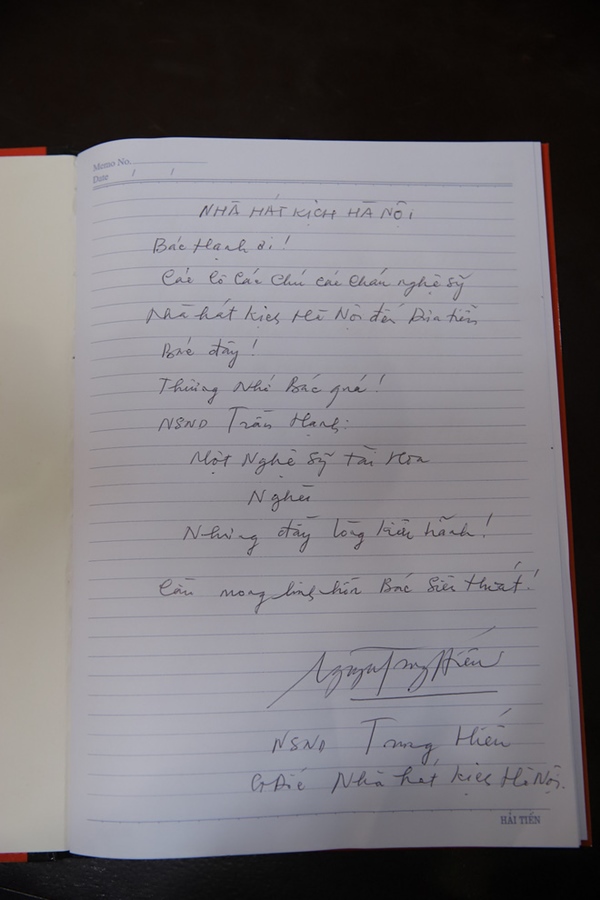 Memo No.
Date / /
NHÀ HÁT KỊCH HÀ NỘI
Bác Hạnh ơi!
Các Cô Các Chú các Cháu nghệ sỹ
Nhà hát kịch Hà Nội đến Đưa tiễn
Bác đây!
Thương Nhớ Bác quá!
NSND Trần Hạnh:
Một Nghệ Sỹ tài Hoa
Nghèo
Nhưng đầy lòng kiêu hãnh!
Cầu mong linh hồn Bác Siêu thoát!
Nguyễn Trung Hiếu
NSND Trung Hiếu
GĐốc Nhà hát kịch Hà Nội.
HẢI TIẾN